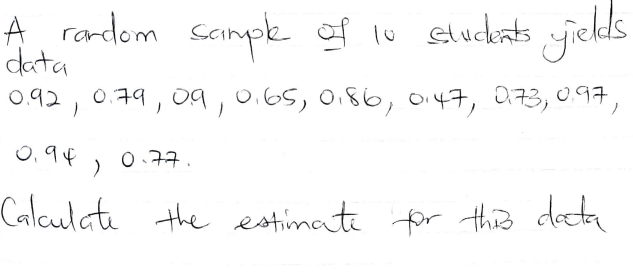 A random sample of 10 students yields
data
0.92, 0.79, 09, 0.65, 0.86, 0.47, 0.73, 0.97,
0.94, 0.77.
Calculate the estimate for this data